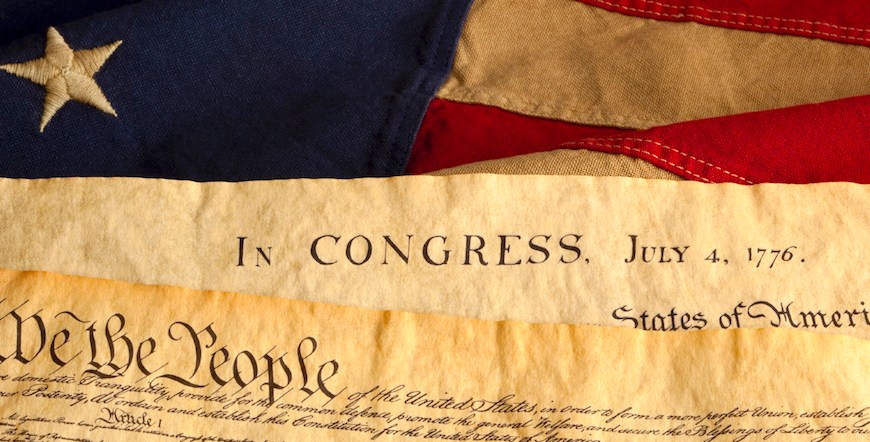 In CONGRESS, July 4, 1776.
States of Ameri
We the People of the United States, in order to form a more perfect Union, establish
domestic Tranquility, provide for the common defence, promote the general Welfare, and secure the Blessings of Liberty to
our Posterity, do ordain and establish this Constitution for the United States of America
Article 1